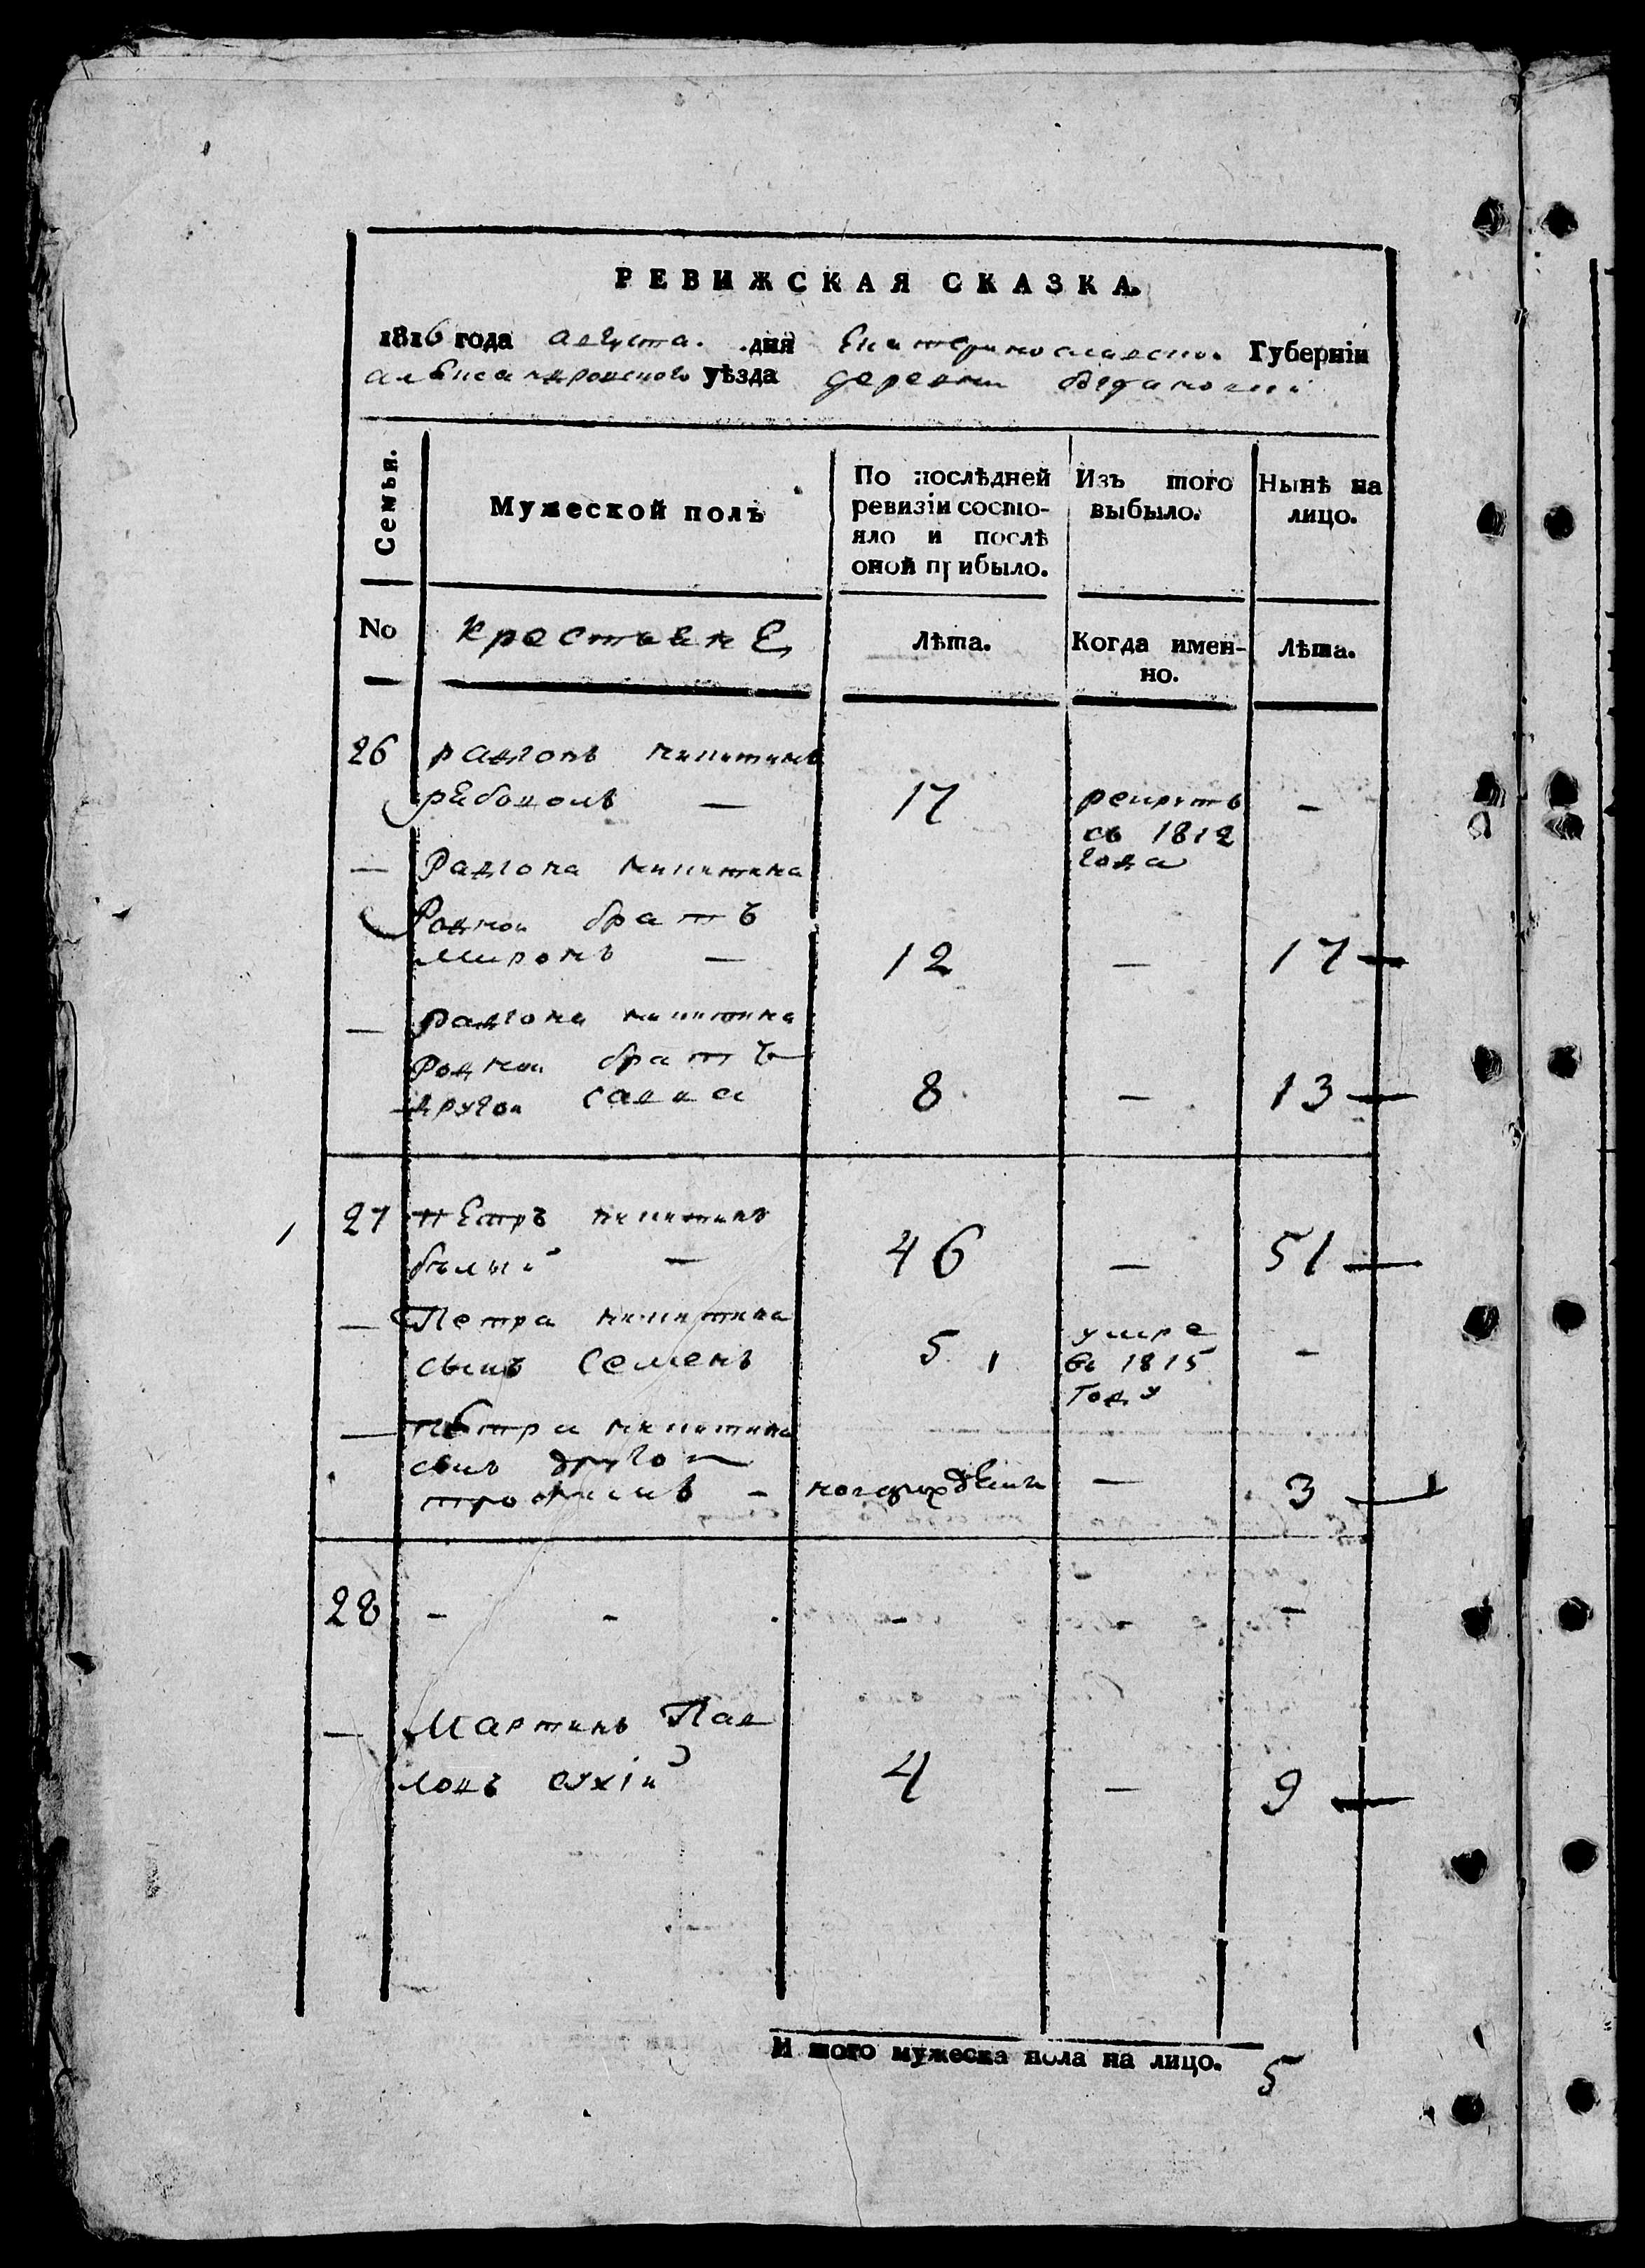 РЕВИЖСКАЯ СКАЗКА.
1816 года августа. дня Екатеринославско. Губерніи
александровского уѣзда деревни
Семья.
Мужеской полъ
По послѣдней ревизіи состо-
яло и послѣ
оной прибыло.
Изъ того
выбыло.
Нынѣ на
лицо.
No
крестьянЕ
Лѣта.
Когда имен-
но.
Лѣта.
26 радıонъ никитинъ
17 рекрутъ -
съ 1812
года
— Радıона никитина
Родной братъ
миронъ — 12 — 17
— радıона никитина
Родной братъ
другой савка 8 — 13
27 пЕтръ никитинъ
белый — 46 — 51
— Петра никитина
сынъ Семенъ 5 умре -
въ 1815
году
— пЕтра никитина
сынъ другой
трофимъ - новорожденъ — 3
28 - - - - -
— Мартинъ Пав
ловъ сухій 4 — 9
И того мужеска пола на лицо. 5